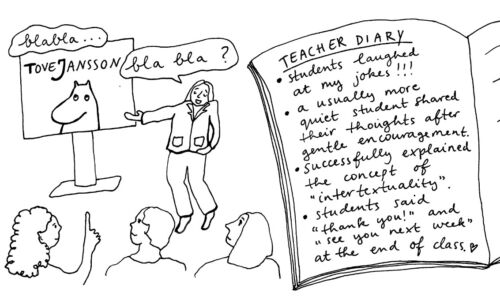 blabla...
TOVE JANSSON
bla bla ?
TEACHER DIARY
• students laughed
at my jokes!!!
• a usually more
quiet student shared
their thoughts after
gentle encouragement.
• successfully explained
the concept of
"intertextuality".
• students said
"thank you!" and
"see you next week"
at the end of class.